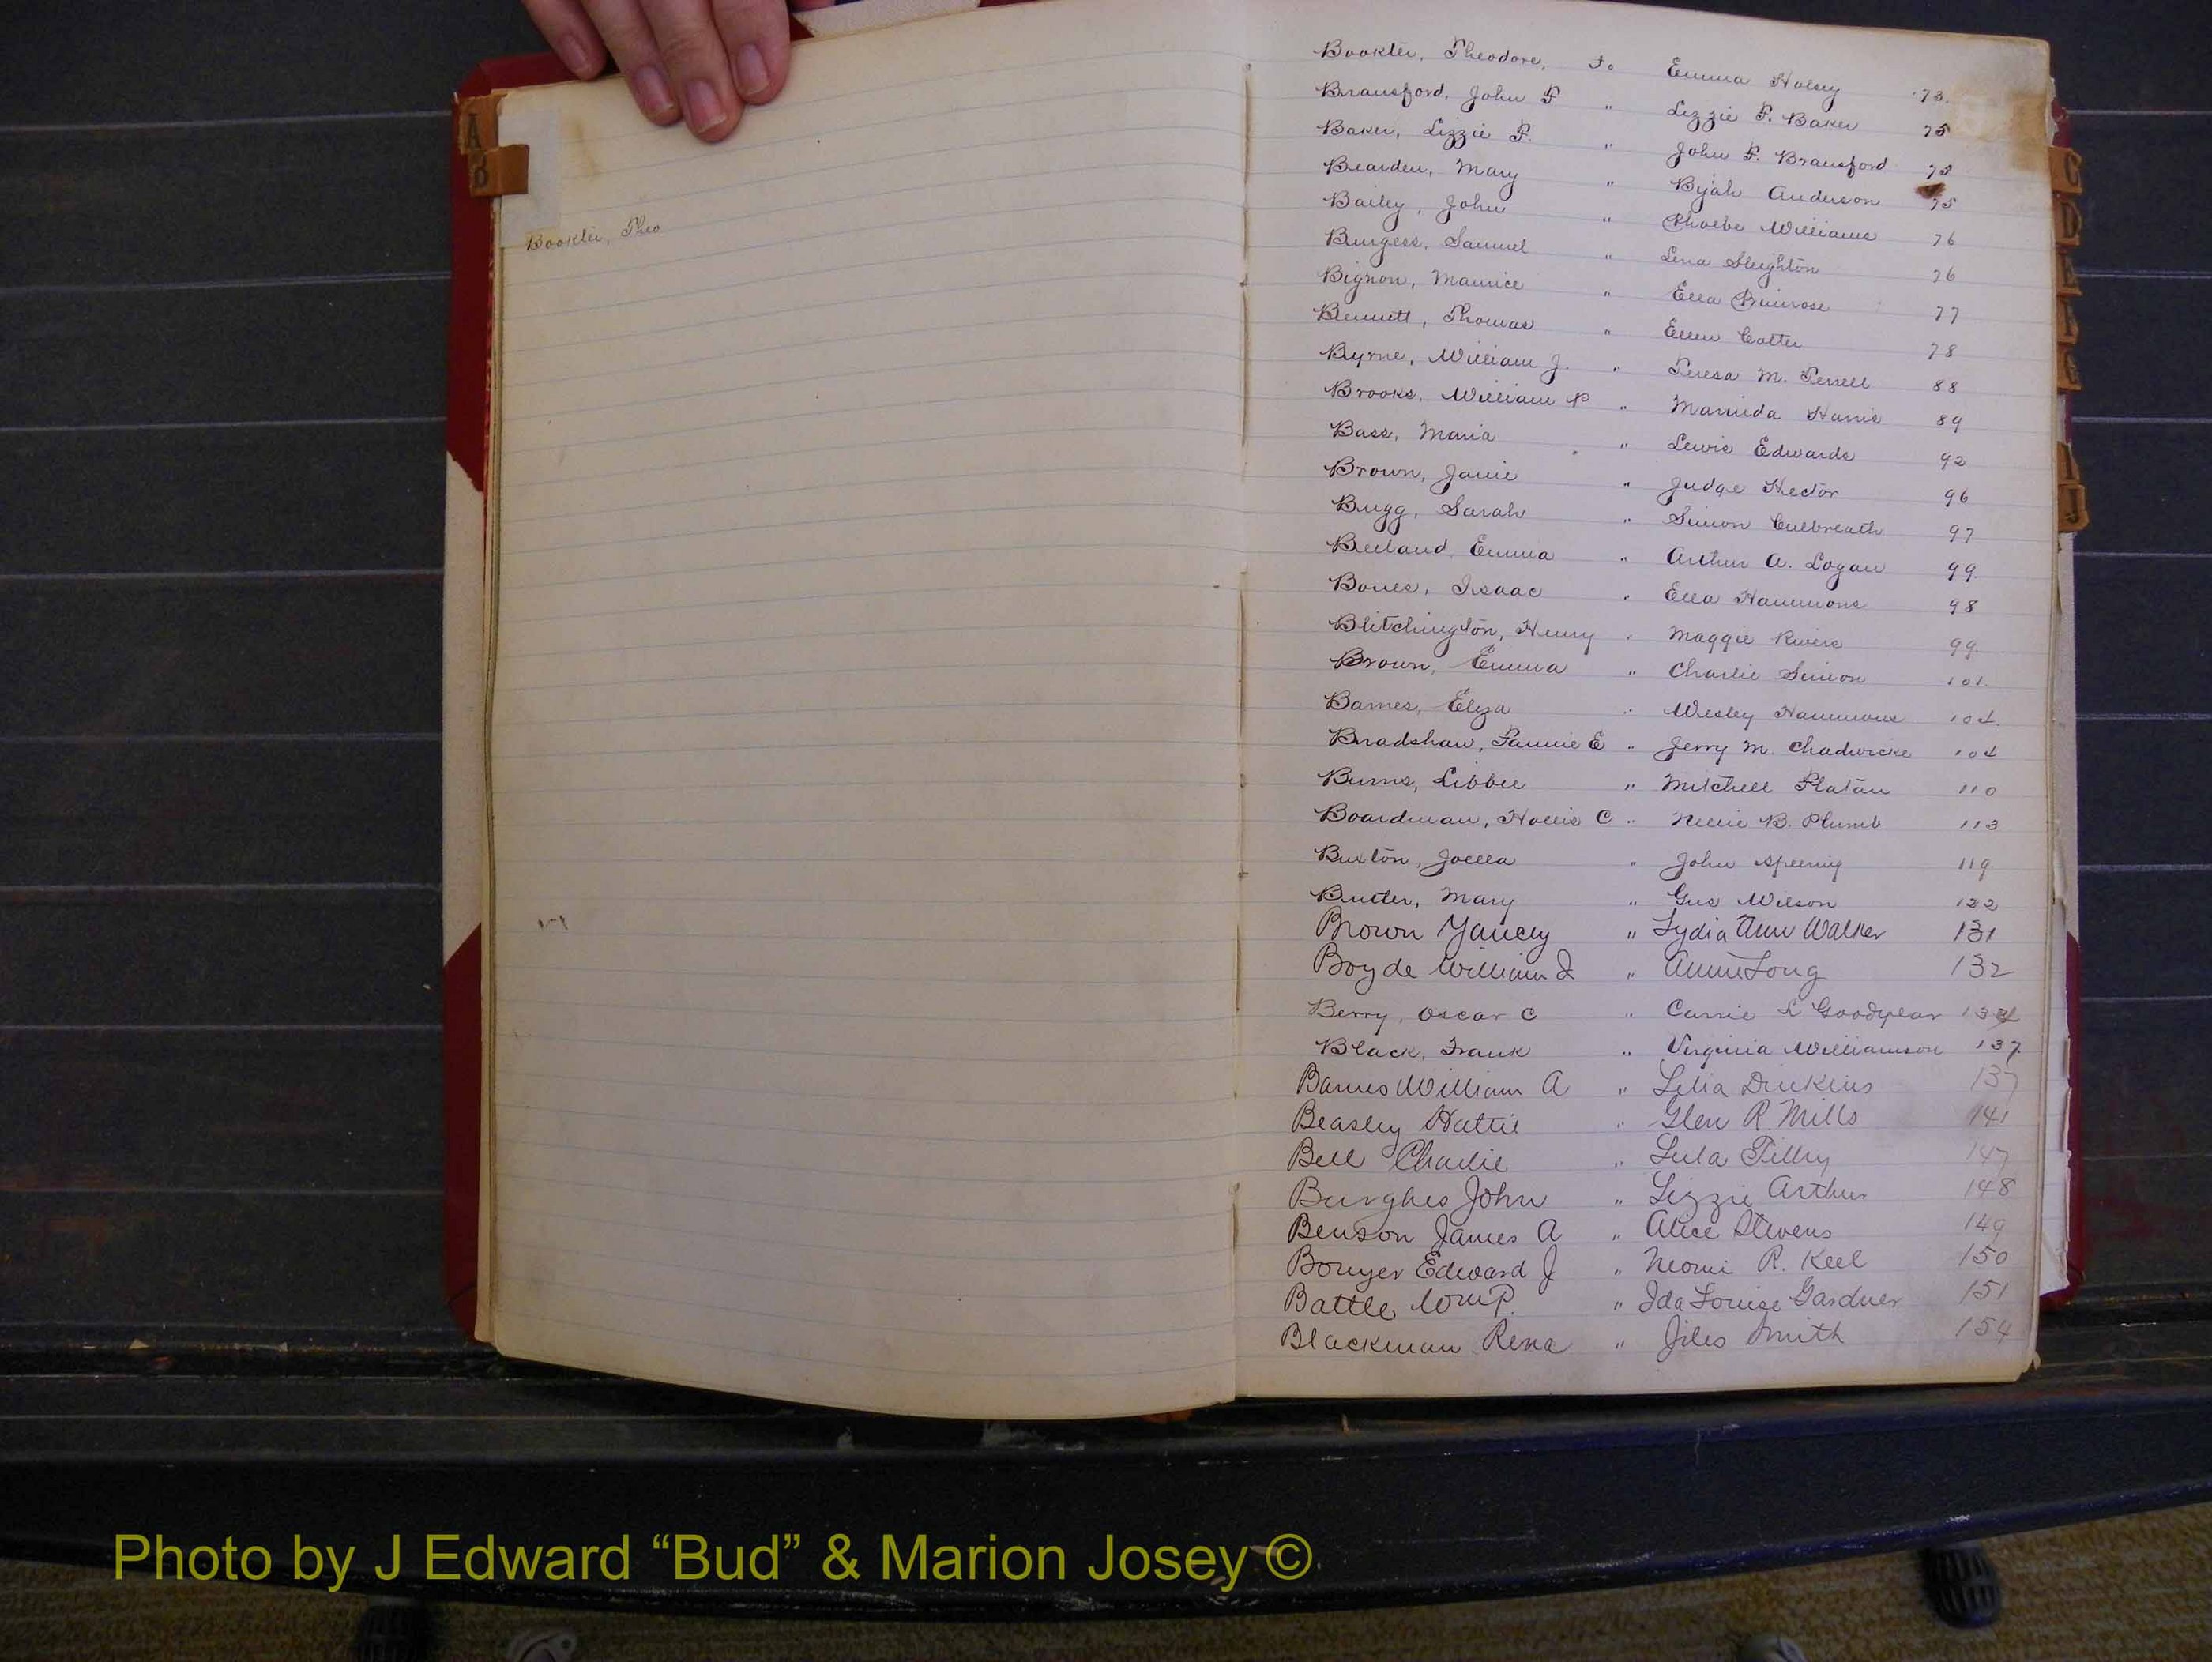 A
B
Bookter, Theo
Bookter, Theodore, to Emma Holsey 73.
Bransford, John F " Lizzie F. Baker 75
Baker, Lizzie F. " John F. Bransford 75
Bearden, Mary " Bijah Anderson 75
Bailey, John " Phoebe Williams 76
Burgess, Samuel " Lena Sleighton 76
Bignon, Maurice " Ella Primrose 77
Bennett, Thomas " Ellen Cotter 78
Byrne, William J. " Teresa M. Ferrell 88
Brooks, William P " Harris 89
Bass, Maria " Lewis Edwards 92
Brown, Janie " Judge Hector 96
Bugg, Sarah " Simon Culbreath 97
Emma " Arthur A. Logan 99.
Bones, Isaac " Ella Hammons 98
Blitchington, Henry " Maggie Rivers 99.
Brown, Emma " Charlie Simon 101.
Barnes, Eliza " Wesley Hammons 104.
Bradshaw, Fannie E " Jerry M. Chadwicke 104
Burns, Libbie " Mitchell Platau 110
Boardman, Hollis C " Nellie B. Plumb 113
Buxton, Joella " John 119
Butler, Mary " Gus Wilson 122
Brown Yancey " Lydia Ann Walker 131
Boyde William J " Annie Long 132
Berry, Oscar C " Carrie L Goodyear 134
Black, Frank " Virginia Williamson 137.
Barnes William A " Lelia Dinkins 137
Beasley Hattie " Glen R. Mills 141
Bell Charlie " Lula Tillry 147
Burghes John " Lizzie Arthur 148
Benson James A " Alice Stevens 149
Bouyer Edward J " Neomi R. Keel 150
Battle Wm P. " Ida Louise Gardner 151
Blackman Rena " Jiles Smith 154
C
D
E
F
G
I
J
Photo by J Edward “Bud” & Marion Josey ©